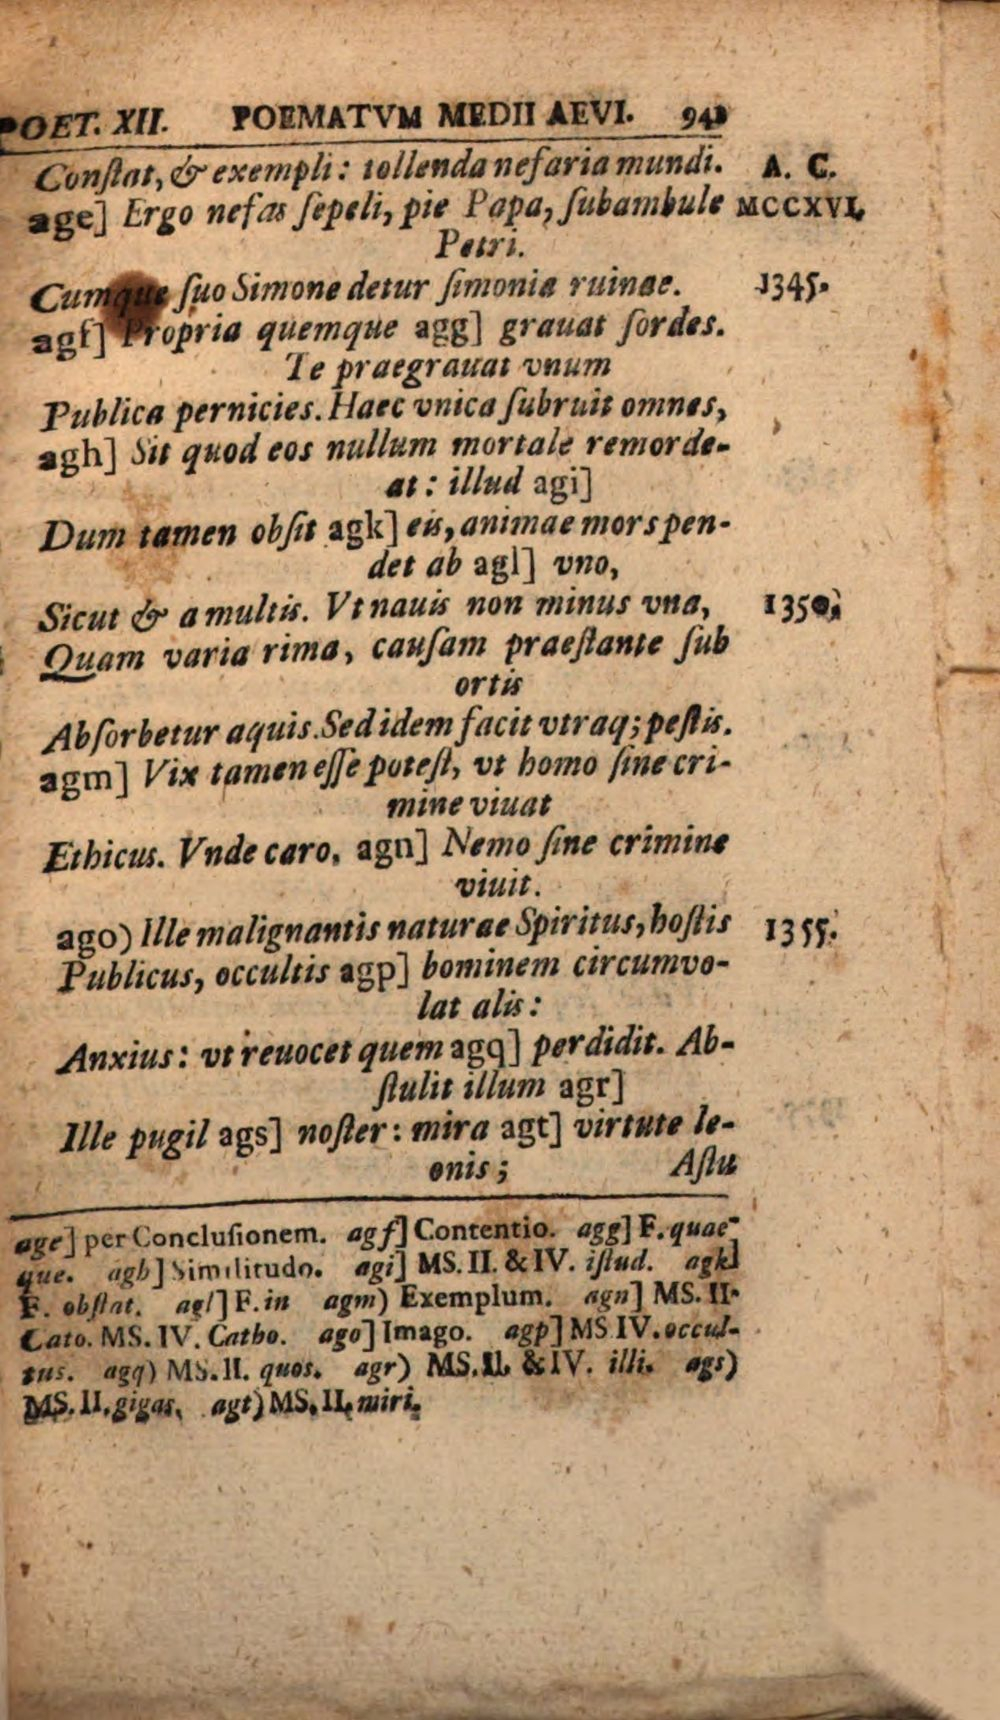 POET. XII. POEMATVM MEDII AEVI. 941
Conſtat, & exempli: tollenda nefaria mundi. A. C.
age] Ergo nefas ſepeli, pie Papa, ſubambule MCCXVI.
Petri.
Cumque ſuo Simone detur ſimonia ruinae. 1345.
agf] Propria quemque agg] grauat ſordes.
Te praegrauat vnum
Publica pernicies. Haec vnica ſubruit omnes,
agh] Sit quod eos nullum mortale remorde-
at: illud agi]
Dum tamen obſit agk] eis, animae mors pen-
det ab agl] vno,
Sicut & a multis. Vt nauis non minus vna, 1350.
Quam varia rima, cauſam praeſtante ſub
ortis
Abſorbetur aquis. Sed idem facit vtraq; peſtis.
agm] Vix tamen eſſe poteſt, vt homo ſine cri-
mine viuat
Ethicus. Vnde caro, agn] Nemo ſine crimine
viuit.
ago) Ille malignantis naturae Spiritus, hoſtis 1355.
Publicus, occultis agp] hominem circumvo-
lat alis:
Anxius: vt reuocet quem agq] perdidit. Ab-
ſtulit illum agr]
Ille pugil ags] noſter: mira agt] virtute le-
onis; Aſtu
age] per Concluſionem. agf] Contentio. agg] F. quae-
que. agh] Similitudo. agi] MS. II. & IV. iſtud. agk]
F. obſtat. agl] F. in agm) Exemplum. agn] MS. II.
Cato. MS. IV. Catho. ago] Imago. agp] MS IV. occul-
tus. agq) MS. II. quos. agr) MS. II. & IV. illi. ags)
MS. II. gigas. agt) MS. II. miri.